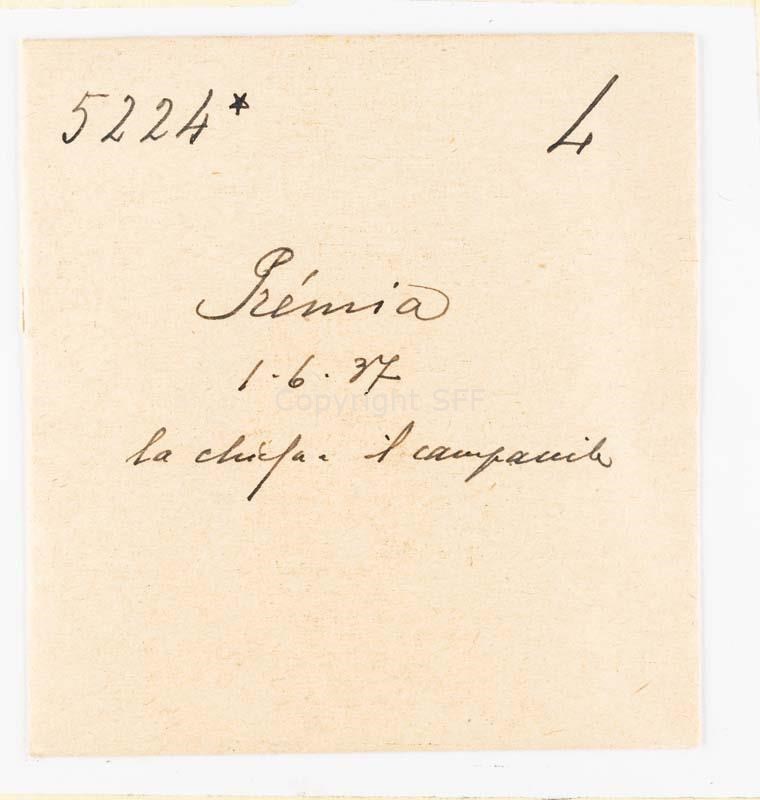 5224* 4
Prémia
1.6.37
Copyright SFF
la chiesa e il campanile